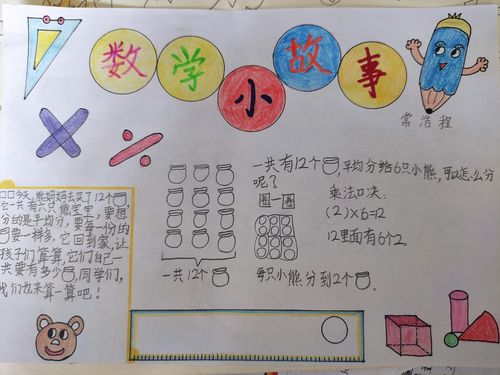 数学小故事
常浩程
今天,熊妈妈去买了12个
它一共有六只熊宝宝,要想
分的是平均分,要每一份的
要一样多,它回到家,让
孩子们算算,它们自己一
共要有多少,同学们,
我们也来算一算吧!
一共12个
一共有12个,平均分给6只小熊,可以怎么分
呢?
乘法口决:
(2)×6=12
12里面有6个2。
每只小熊分到2个。